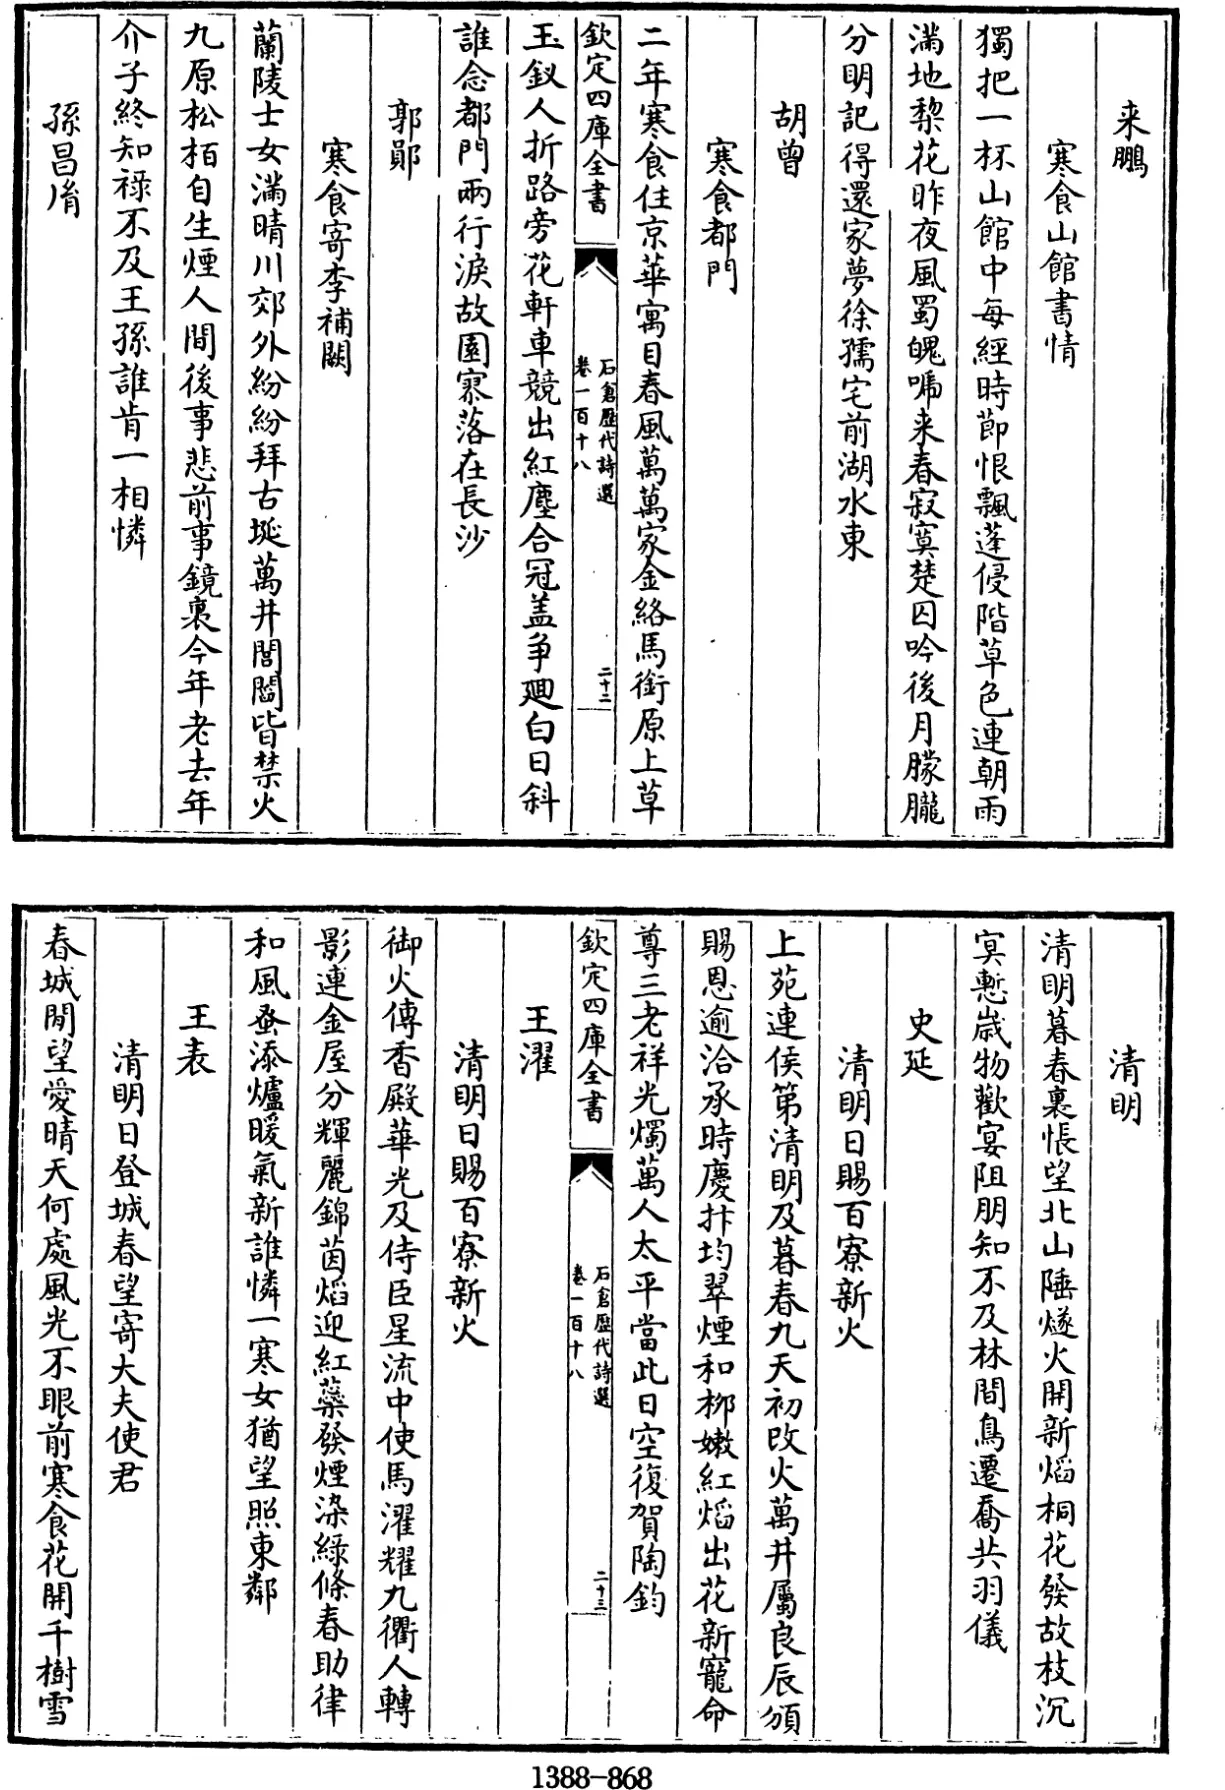 来鵬
寒食山館書情
獨把一杯山館中每經時節恨飄蓬侵階草色連朝雨
滿地棃花昨夜風蜀魄啼来春寂寞楚囚吟後月朦朧
分明記得還家夢徐孺宅前湖水東
胡曾
寒食都門
二年寒食住京華寓目春風萬萬家金絡馬銜原上草
欽定四庫全書
石倉歷代詩選
卷一百十八
二十二
玉釵人折路旁花軒車競出紅塵合冠盖争廻白日斜
誰念都門兩行淚故園寥落在長沙
郭鄖
寒食寄李補闕
蘭陵士女滿晴川郊外紛紛拜古埏萬井閭閻皆禁火
九原松栢自生煙人間後事悲前事鏡裏今年老去年
介子終知祿不及王孫誰肯一相憐
孫昌胤
清明
清明暮春裏悵望北山陲燧火開新焰桐花發故枝沉
冥慙歲物歡宴阻朋知不及林間鳥遷喬共羽儀
史延
清明日賜百寮新火
上苑連侯第清明及暮春九天初改火萬井屬良辰頒
賜恩逾洽承時慶抃均翠煙和栁嫩紅焰出花新寵命
尊三老祥光燭萬人太平當此日空復賀陶鈞
欽定四庫全書
石倉歷代詩選
卷一百十八
二十三
王濯
清明日賜百寮新火
御火傳香殿華光及侍臣星流中使馬濯耀九衢人轉
影連金屋分輝麗錦茵焰迎紅蘂發煙染綠條春助律
和風蚤添爐暖氣新誰憐一寒女猶望照東鄰
王表
清明日登城春望寄大夫使君
春城閒望愛晴天何處風光不眼前寒食花開千樹雪
1388-868